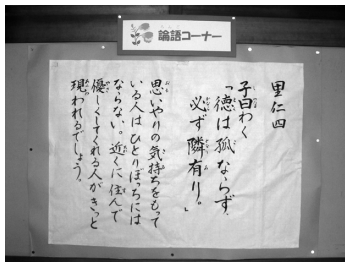 論語コーナー
里仁四
子曰わく
「徳は孤ならず、
必ず隣有り。」
思いやりの気持ちをもって
いる人はひとりぼっちには
ならない。近くに住んで
優しくしてくれる人がきっと
現われるでしょう。